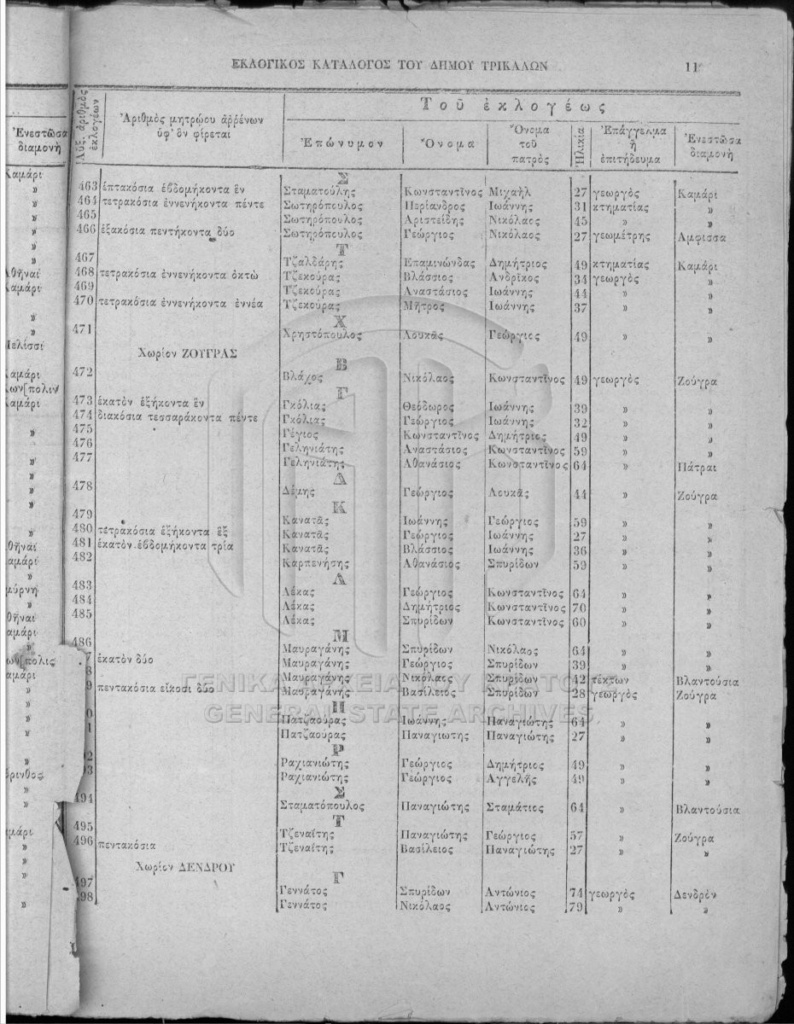 ΕΚΛΟΓΙΚΟΣ ΚΑΤΑΛΟΓΟΣ ΤΟΥ ΔΗΜΟΥ ΤΡΙΚΑΛΩΝ 11
Αὔξ. ἀριθμὸς ἐκλογέων
Ἀριθμὸς μητρῴου ἀρρένων ὑφ' ὃν φέρεται
Τοῦ ἐκλογέως
Ἐπώνυμον Ὄνομα Ὄνομα τοῦ πατρὸς Ἡλικία Ἐπάγγελμα ἢ ἐπιτήδευμα Ἐνεστῶσα διαμονὴ
Σ
463 ἑπτακόσια ἑβδομήκοντα ἓν Σταματούλης Κωνσταντῖνος Μιχαὴλ 27 γεωργὸς Καμάρι
464 τετρακόσια ἐννενήκοντα πέντε Σωτηρόπουλος Περίανδρος Ἰωάννης 31 κτηματίας »
465 Σωτηρόπουλος Ἀριστείδης Νικόλαος 45 » »
466 ἑξακόσια πεντήκοντα δύο Σωτηρόπουλος Γεώργιος Νικόλαος 27 γεωμέτρης Ἄμφισσα
Τ
467 Τζαλδάρης Ἐπαμινώνδας Δημήτριος 49 κτηματίας Καμάρι
468 τετρακόσια ἐννενήκοντα ὀκτὼ Τζεκούρας Βλάσσιος Ἀνδρῖκος 34 γεωργὸς »
469 Τζεκούρας Ἀναστάσιος Ἰωάννης 44 » »
470 τετρακόσια ἐννενήκοντα ἐννέα Τζεκούρας Μῆτρος Ἰωάννης 37 » »
Χ
471 Χρηστόπουλος Λουκᾶς Γεώργιος 49 » »
Χωρίον ΖΟΥΓΡΑΣ
Β
472 Βλάχος Νικόλαος Κωνσταντῖνος 49 γεωργὸς Ζούγρα
Γ
473 ἑκατὸν ἑξήκοντα ἓν Γκόλιας Θεόδωρος Ἰωάννης 39 » »
474 διακόσια τεσσαράκοντα πέντε Γκόλιας Γεώργιος Ἰωάννης 32 » »
475 Γέγιος Κωνσταντῖνος Δημήτριος 49 » »
476 Γεληνιάτης Ἀναστάσιος Κωνσταντῖνος 59 » »
477 Γεληνιάτης Ἀθανάσιος Κωνσταντῖνος 64 » Πάτραι
Δ
478 Δέμης Γεώργιος Λουκᾶς 44 » Ζούγρα
Κ
479 Κανατᾶς Ἰωάννης Γεώργιος 59 » »
480 τετρακόσια ἑξήκοντα ἓξ Κανατᾶς Γεώργιος Ἰωάννης 27 » »
481 ἑκατὸν ἑβδομήκοντα τρία Κανατᾶς Βλάσσιος Ἰωάννης 36 » »
482 Καρπενήσης Ἀθανάσιος Σπυρίδων 59 » »
Λ
483 Λέκας Γεώργιος Κωνσταντῖνος 64 » »
484 Λέκας Δημήτριος Κωνσταντῖνος 70 » »
485 Λέκας Σπυρίδων Κωνσταντῖνος 60 » »
Μ
486 Μαυραγάνης Σπυρίδων Νικόλαος 64 » »
7 ἑκατὸν δύο Μαυραγάνης Γεώργιος Σπυρίδων 39 » »
8 Μαυραγάνης Νικόλαος Σπυρίδων 42 τέκτων Βλαντούσια
9 πεντακόσια εἴκοσι δύο Μαυραγάνης Βασίλειος Σπυρίδων 28 γεωργὸς Ζούγρα
Π
0 Πατζαούρας Ἰωάννης Παναγιώτης 64 » »
1 Πατζαούρας Παναγιώτης Παναγιώτης 27 » »
Ρ
92 Ραχιανιώτης Γεώργιος Δημήτριος 49 » »
93 Ραχιανιώτης Γεώργιος Ἀγγελῆς 49 » »
Σ
494 Σταματόπουλος Παναγιώτης Σταμάτιος 64 » Βλαντούσια
Τ
495 Τζεναΐτης Παναγιώτης Γεώργιος 57 » Ζούγρα
496 πεντακόσια Τζεναΐτης Βασίλειος Παναγιώτης 27 » »
Χωρίον ΔΕΝΔΡΟΥ
Γ
497 Γεννάτος Σπυρίδων Ἀντώνιος 74 γεωργὸς Δενδρὸν
98 Γεννάτος Νικόλαος Ἀντώνιος 79 » »
ΓΕΝΙΚΑ ΑΡΧΕΙΑ ΤΟΥ ΚΡΑΤΟΥΣ
GENERAL STATE ARCHIVES